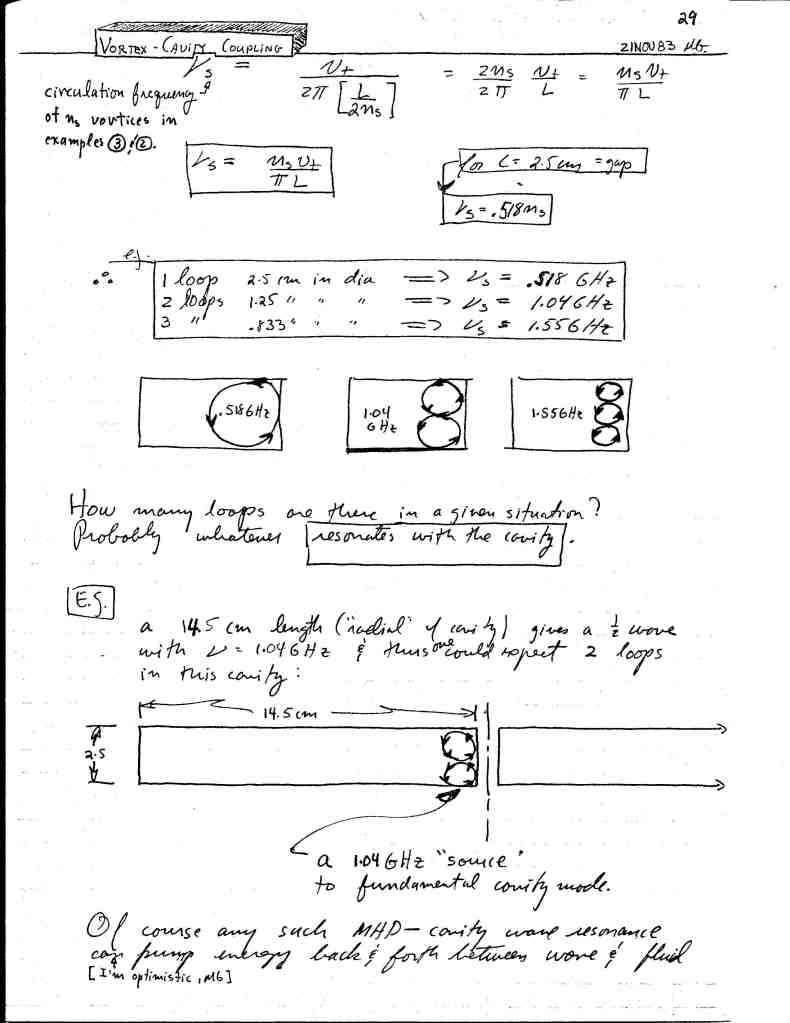 29
VORTEX-CAVITY COUPLING
21NOV83 MG.
νs = v+ / 2π [L/2ns] = 2ns/2π v+/L = ns v+/π L
circulation frequency
of ns vortices in
examples ③ & ②.
νs = ns v+ / π L
for L = 2.5 cm = gap
νs = .518 ns
e.g.
∴ 1 loop 2.5 cm in dia => νs = .518 GHz
2 loops 1.25 " " " => νs = 1.04 GHz
3 " .833 " " " => νs = 1.55 GHz
.518 GHz
1.04
GHz
1.55GHz
How many loops are there in a given situation?
Probably whatever resonates with the cavity.
E.g.
a 14.5 cm length ("radial" of cavity) gives a ½ wave
with ν = 1.04 GHz & thus one could expect 2 loops
in this cavity:
14.5 cm
2.5
a 1.04 GHz "source"
to fundamental cavity mode.
Of course any such MHD-cavity wave resonance
can pump energy back & forth between wave & fluid
[I'm optimistic, MG]